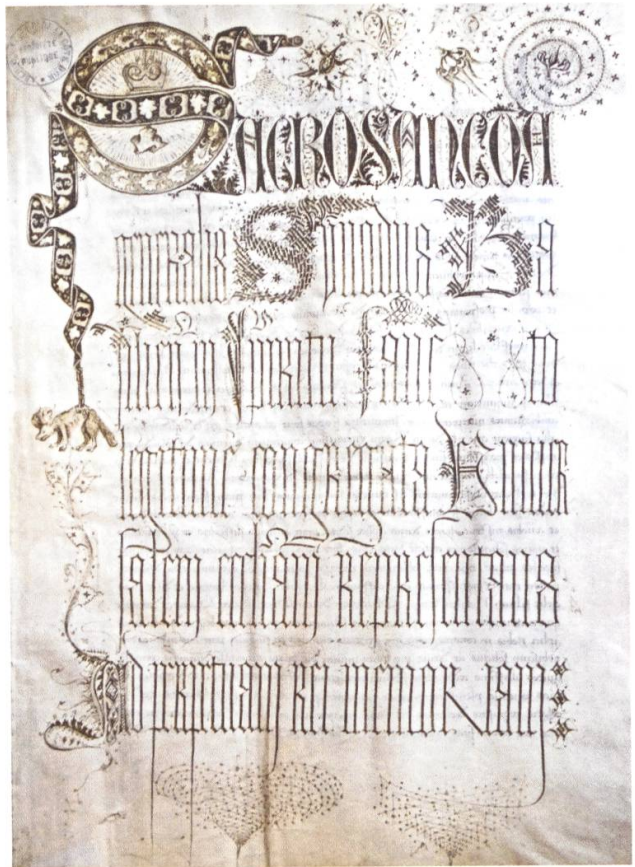 SACROSANCTA
generalis Synodus Ba
silien in Spiritu sanc to
legitime congregata Vniuer
salem eccliam representans
Ad perpetuam rei memoriam